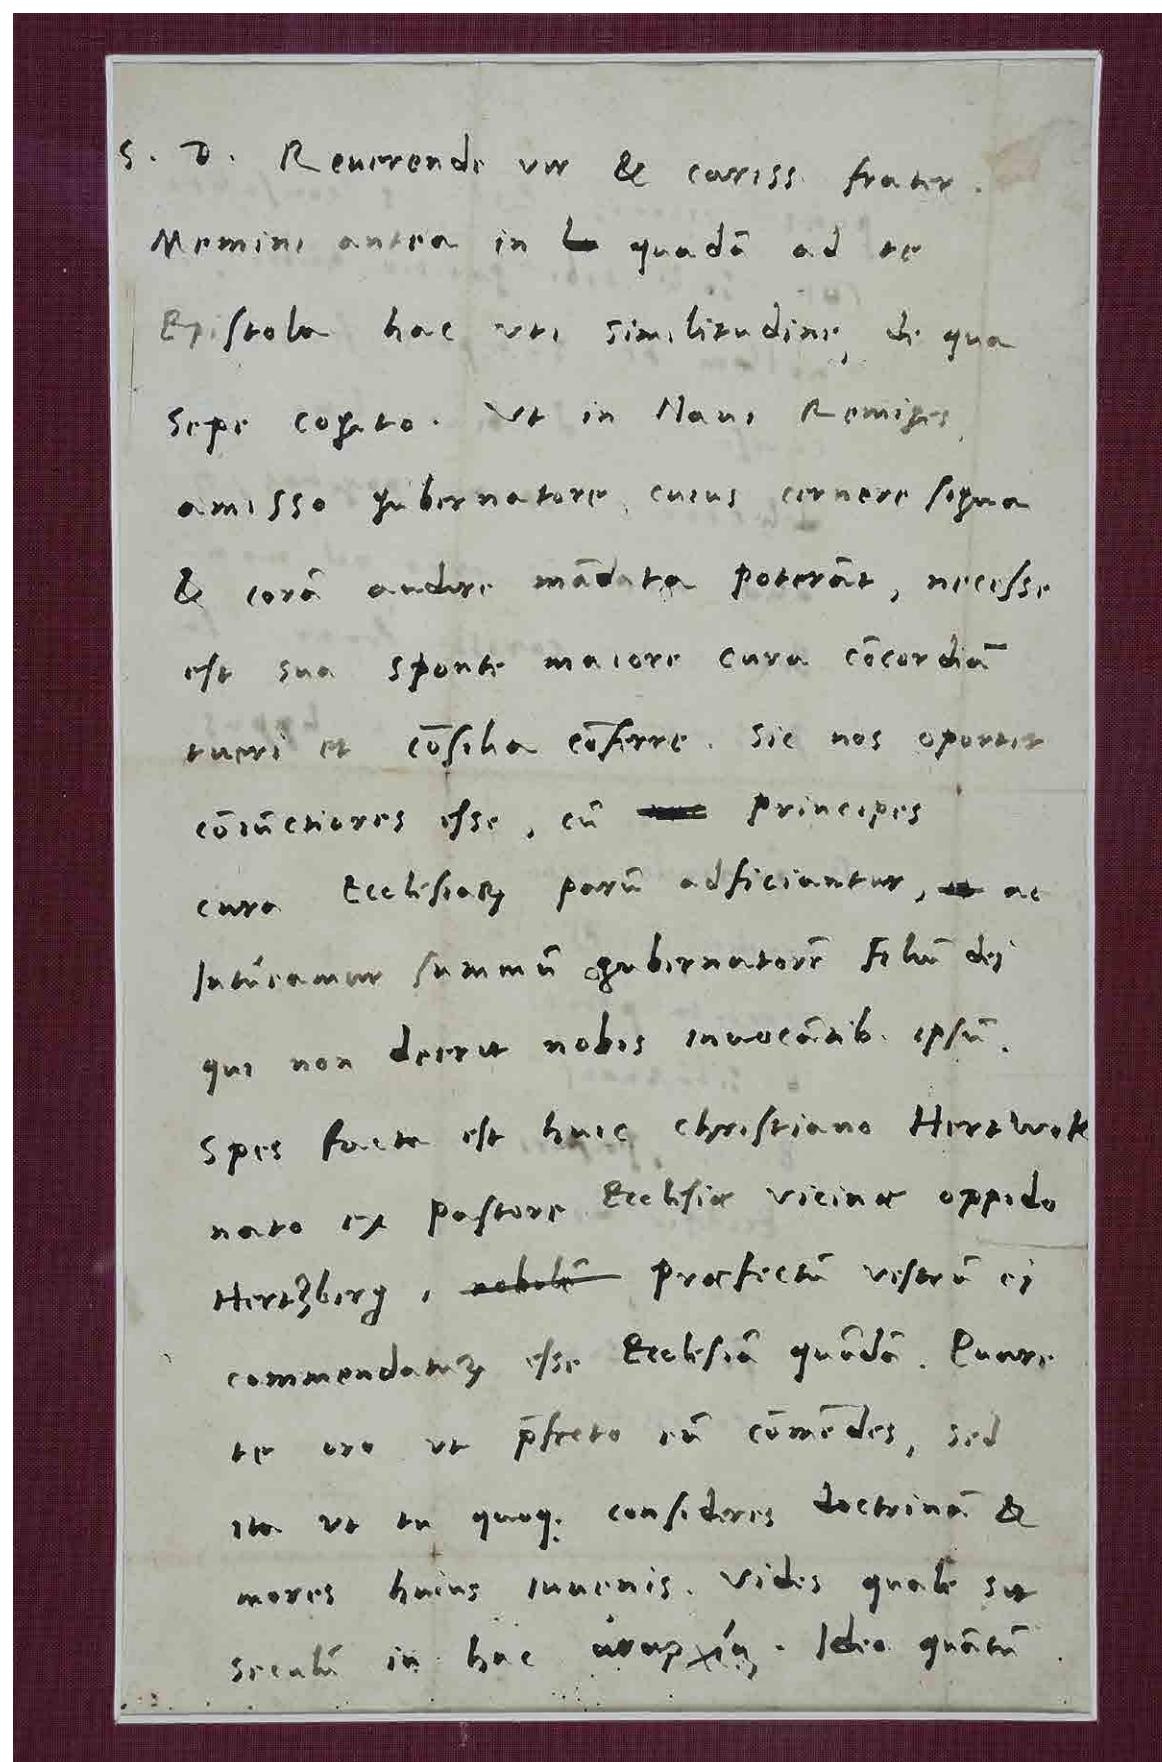 S. D. Reuerende vir & cariss. frater.
Memini antea in quadā ad te
Epistola hac vti similitudine, de qua
sepe cogito. Vt in Naui Remiges,
amisso gubernatore, cuius cernere signa
& corā audire mādata poterāt, necesse
est sua sponte maiore cura cōcordiā
tueri et cōsilia cōferre. Sic nos oportet
cōiūctiores esse, cū principes
cura Ecclesiaꝝ parū adficiantur, ac
Intueamur summū gubernatorē Filiū dej
qui non deerit nobis inuocātib. ipsū.
Spes facta est huic Christiano
nato ex pastore Ecclesiæ vicinæ oppido
Hertzberg, præfectū vestrū ej
esse Ecclesiā quādā. Quare
te oro vt p̄fecto eū cōmēdes, sed
ita vt tu quoq; consideres doctrinā &
mores huius iuuenis. Vides quale sit
seculū in hac ἀναρχίᾳ. Ideo quātū